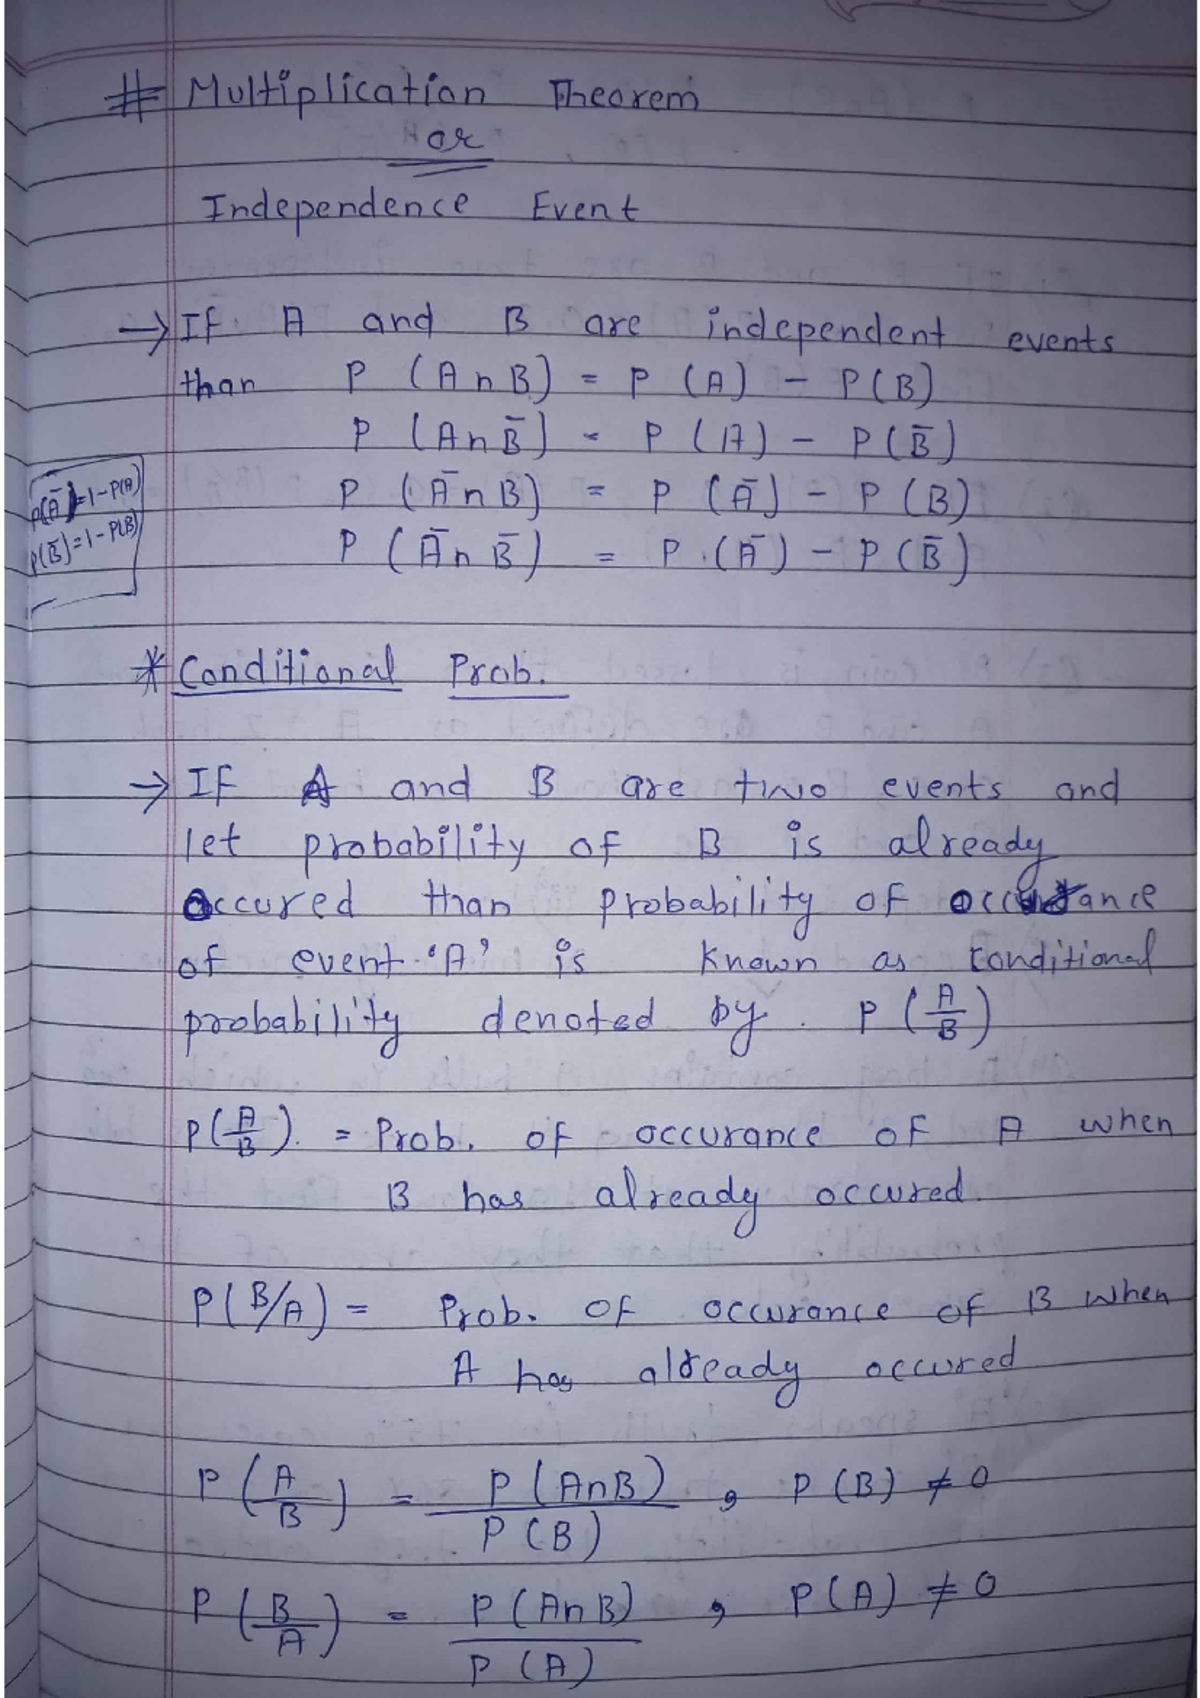 # Multiplication Theorem
or
Independence Event
→ If A and B are independent events
than P (A∩B) = P (A) - P(B)
P (A∩B̄) = P (A) - P(B̄)
P (Ā∩B) = P (Ā) - P (B)
P (Ā∩B̄) = P.(Ā) - P(B̄)
P(Ā)=1-P(A)
P(B̄)=1-P(B)
* Conditional Prob.
→ If A and B are two events and
let probability of B is already
occured than probability of occurance
of event 'A' is known as conditional
probability denoted by. P (A/B)
P(A/B). = Prob. of occurance of A when
B has already occured.
P(B/A) = Prob. of occurance of B when
A has already occured
P (A/B) = P (A∩B)/P (B) , P (B) ≠ 0
P (B/A) = P (A∩B)/P (A) , P(A) ≠ 0